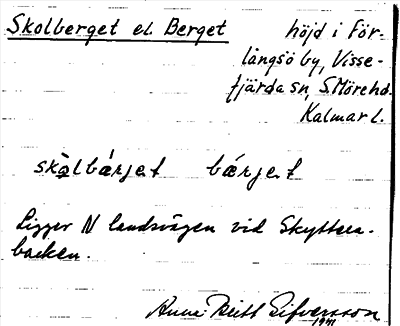 Skolberget el. Berget
höjd i För-
långsö by, Visse-
fjärda sn, S. Möre hd.
Kalmar l.
skòlbærjet bærjet
Ligger N landsvägen vid Skyttea-
backen.
Anna Britt Sifversson
1941